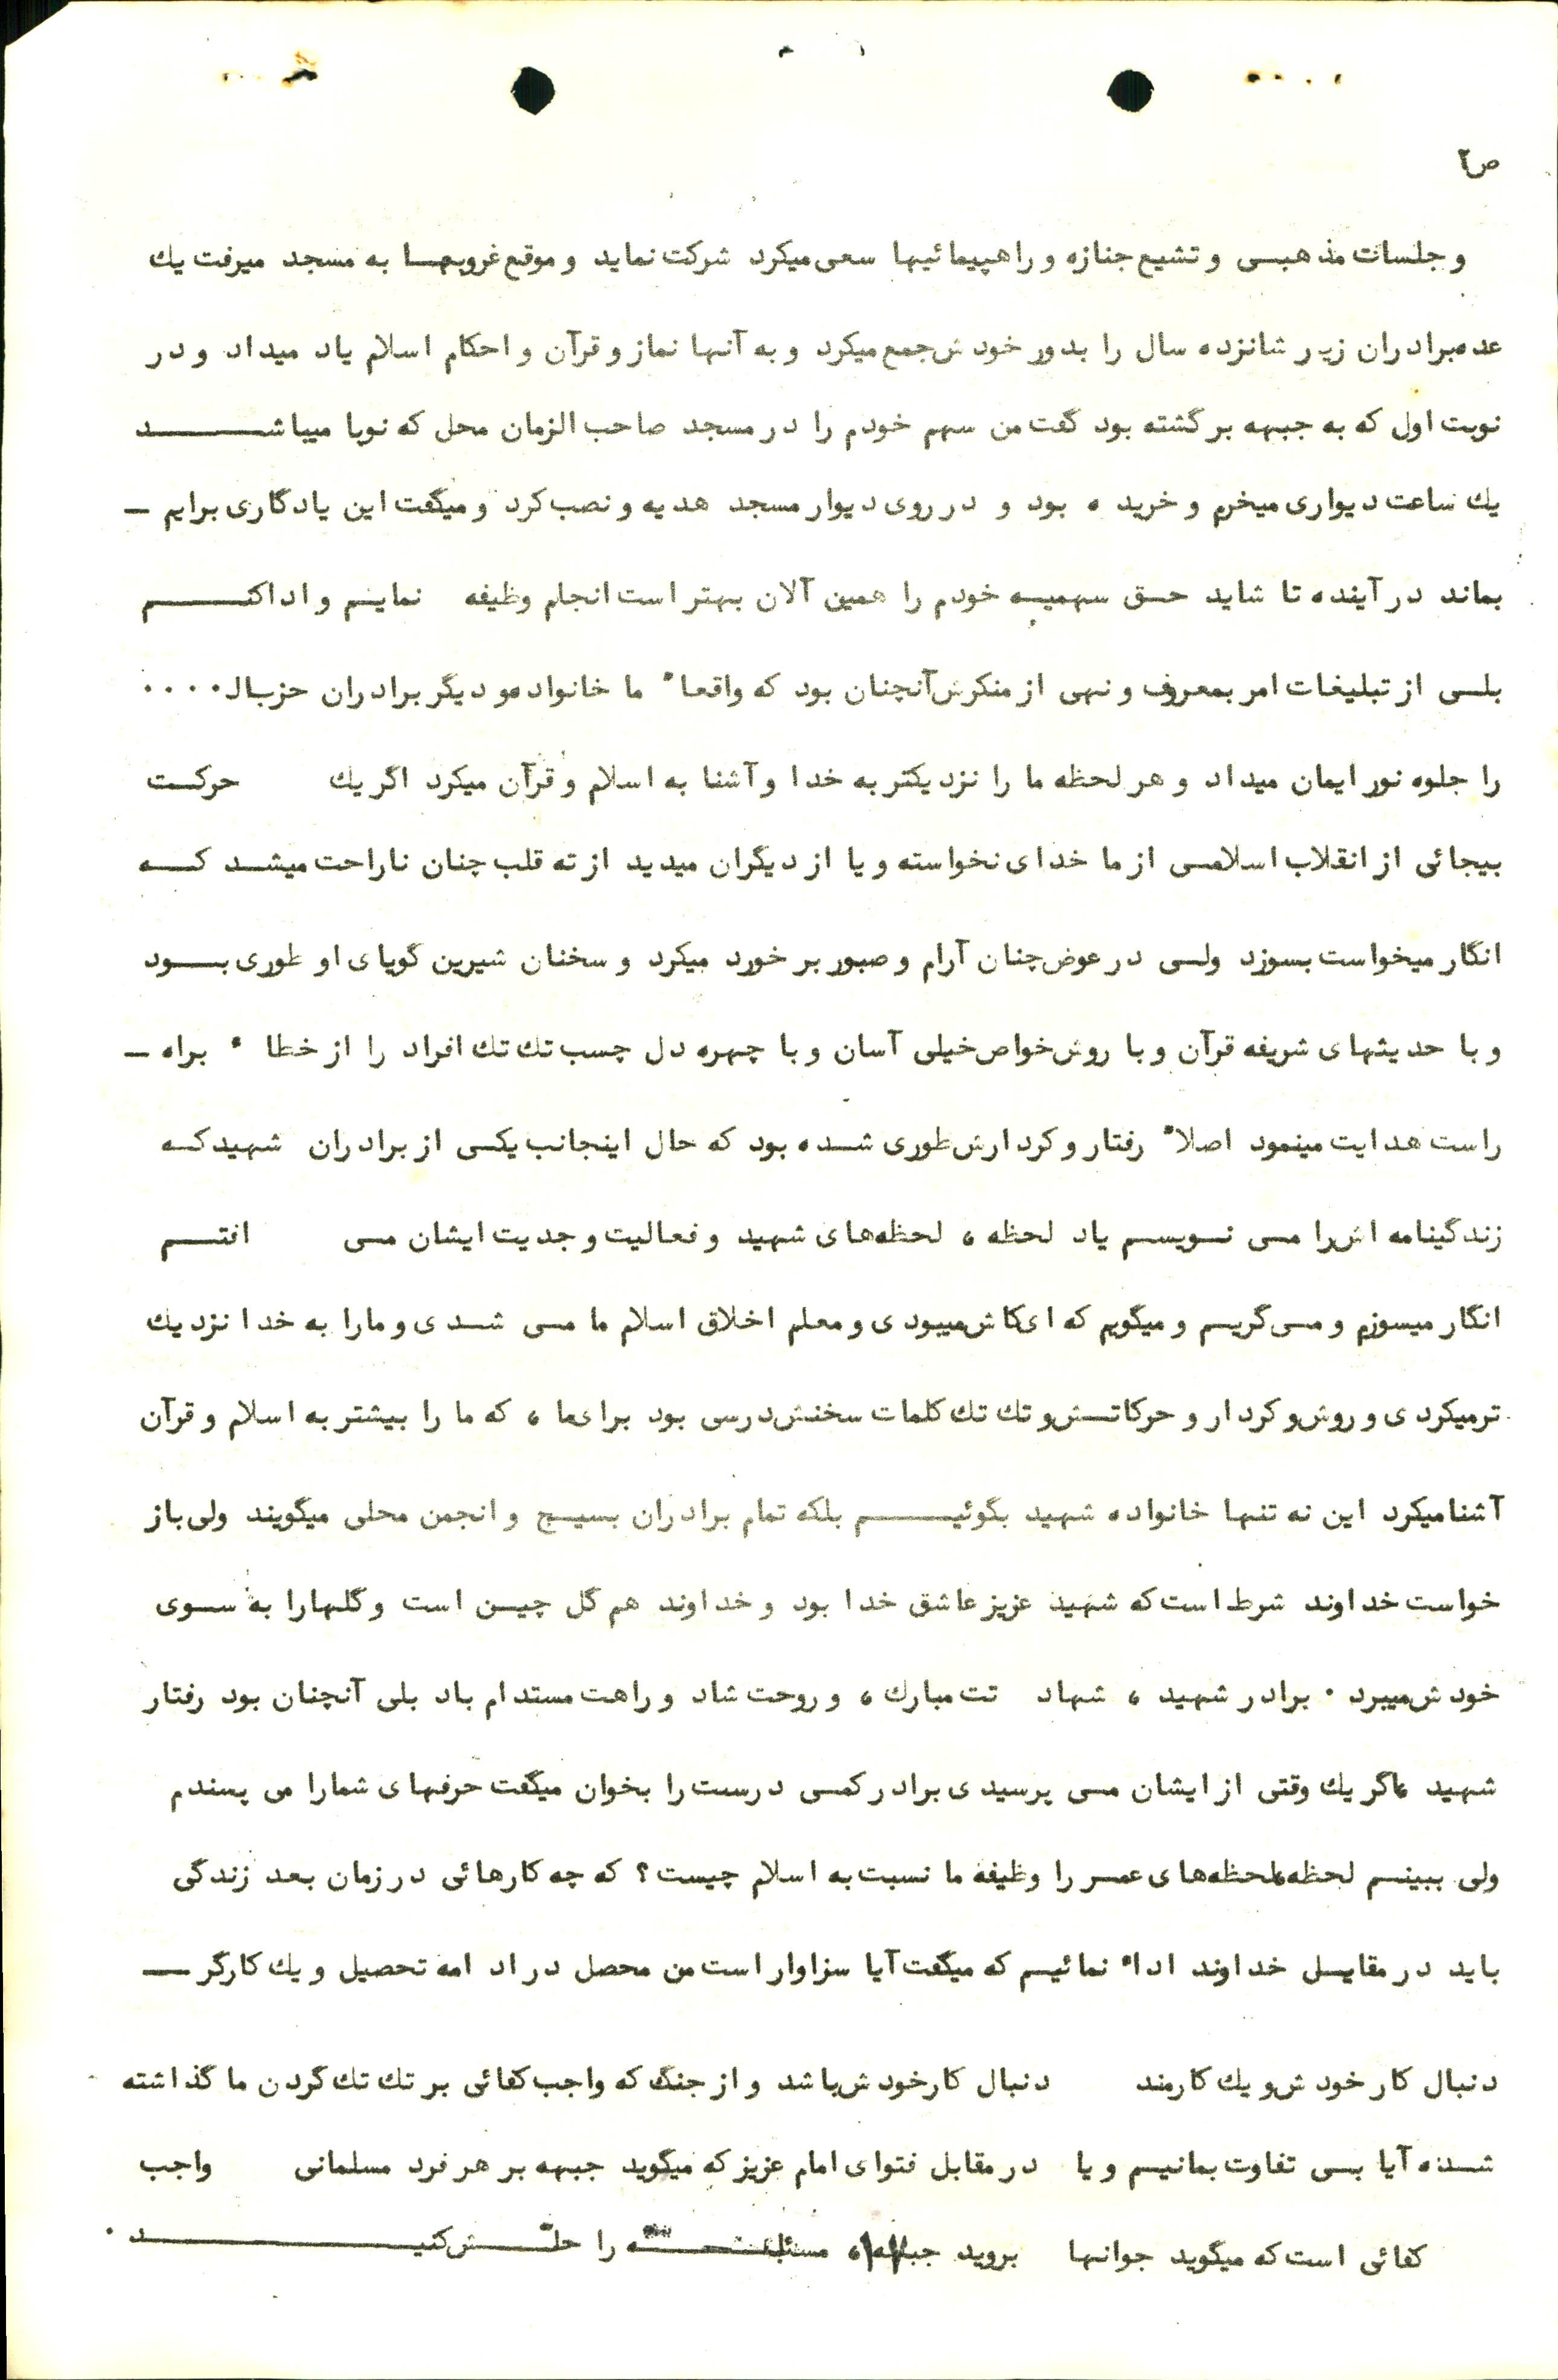 ص۲
و جلسات مذهبی و تشیع جنازه و راهپیمائیها سعی میکرد شرکت نماید و موقع غروبها به مسجد میرفت یك
عده برادران زیر شانزده سال را بدور خودش جمع میکرد و به آنها نماز و قرآن و احکام اسلام یاد میداد و در
نوبت اول که به جبهه برگشته بود گفت من سهم خودم را در مسجد صاحب الزمان محل که نوپا میباشد
یك ساعت دیواری میخرم و خریده بود و در روی دیوار مسجد هدیه و نصب کرد و میگفت این یادگاری برایم —
بماند در آینده تا شاید حق سهمیه خودم را همین آلان بهتر است انجام وظیفه نمایم و ادا کنم
بلی از تبلیغات امر بمعروف و نهی از منکرش آنچنان بود که واقعاً ما خانواده و دیگر برادران حزبال....
را جلوه نور ایمان میداد و هر لحظه ما را نزدیکتر به خدا و آشنا به اسلام و قرآن میکرد اگر یك حرکت
بیجائی از انقلاب اسلامی از ما خدای نخواسته و یا از دیگران میدید از ته قلب چنان ناراحت میشد که
انگار میخواست بسوزد ولی در عوض چنان آرام و صبور برخورد میکرد و سخنان شیرین گویای او طوری بود
و با حدیثهای شریفه قرآن و با روش خواص خیلی آسان و با چهره دل چسب تك تك افراد را از خطاء براه —
راست هدایت مینمود اصلاً رفتار و کردارش طوری شده بود که حال اینجانب یکی از برادران شهید که
زندگینامه اش را می نویسم یاد لحظه ، لحظه‌های شهید و فعالیت و جدیت ایشان می افتم
انگار میسوزم و می گریم و میگویم که ای کاش میبودی و معلم اخلاق اسلام ما می شدی و مارا به خدا نزدیك
ترمیکردی و روش و کردار و حرکاتش و تك تك کلمات سخنش درسی بود برای ما ، که ما را بیشتر به اسلام و قرآن
آشنا میکرد این نه تنها خانواده شهید بگوئیم بلکه تمام برادران بسیج و انجمن محلی میگویند ولی باز
خواست خداوند شرط است که شهید عزیز عاشق خدا بود و خداوند هم گل چین است و گلهارا به سوی
خودش میبرد . برادر شهید ، شهاد تت مبارك ، و روحت شاد و راهت مستدام باد بلی آنچنان بود رفتار
شهید ، اگر یك وقتی از ایشان می پرسیدی برادر کمی درست را بخوان میگفت حرفهای شمارا می پسندم
ولی ببینم لحظه ، لحظه‌های عمر را وظیفه ما نسبت به اسلام چیست؟ که چه کارهائی در زمان بعد زندگی
باید در مقابل خداوند اداء نمائیم که میگفت آیا سزاوار است من محصل در ادامه تحصیل و یك کارگر —
دنبال کار خودش و یك کارمند دنبال کار خودش باشد و از جنگ که واجب کفائی بر تك تك گردن ما گذاشته
شده آیا بی تفاوت بمانیم و یا در مقابل فتوای امام عزیز که میگوید جبهه بر هر فرد مسلمانی واجب
کفائی است که میگوید جوانها بروید جبهه ، مسئله را حلش کنید .